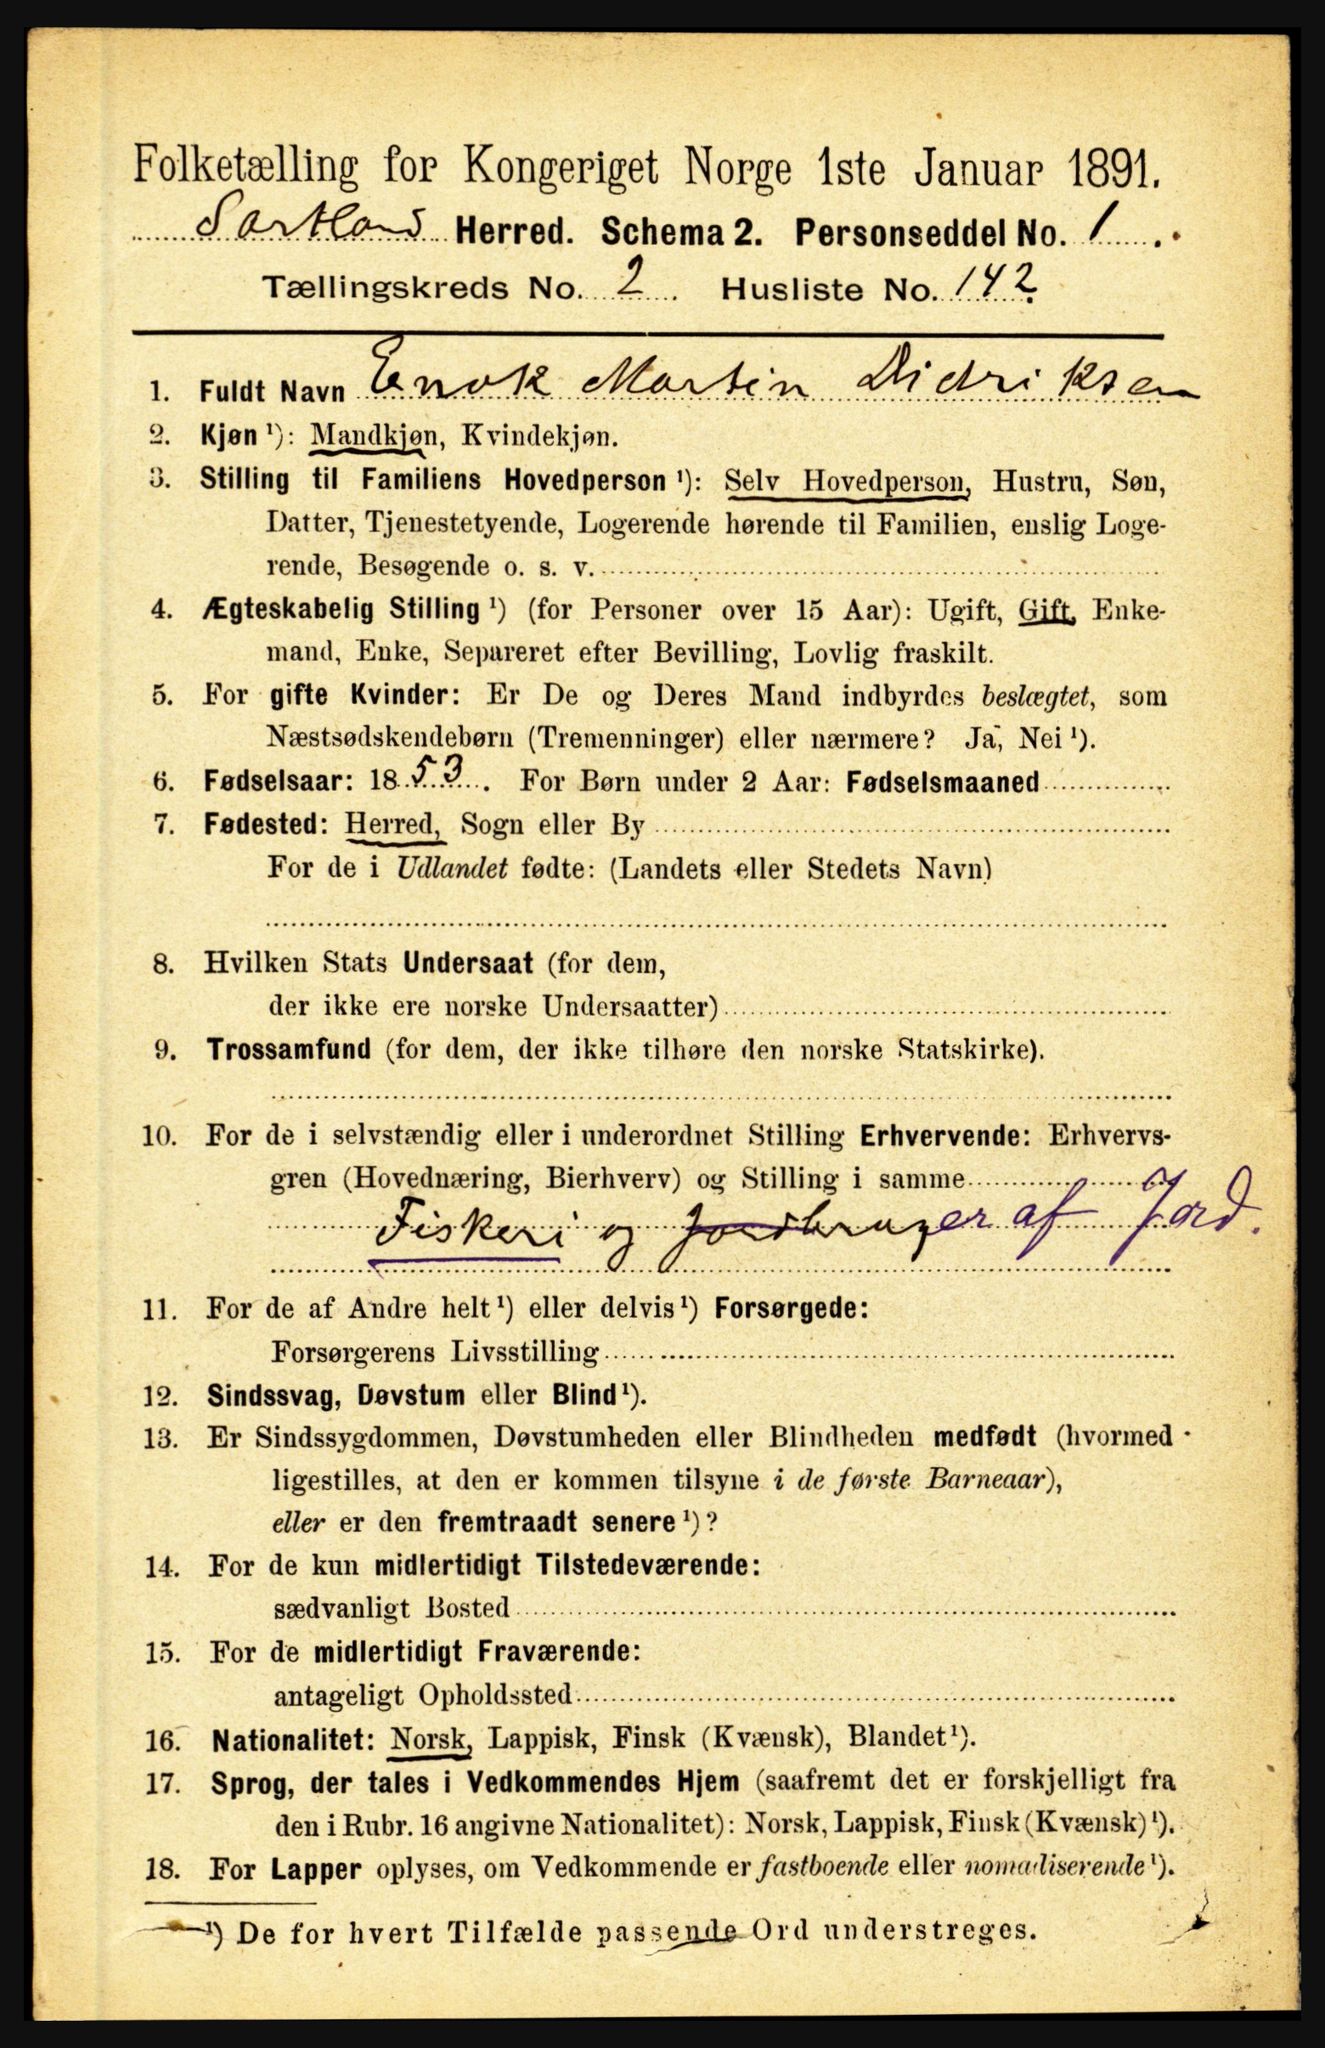 Folketælling for Kongeriget Norge 1ste Januar 1891.
Sortland Herred. Schema 2. Personseddel No. 1.
Tællingskreds No. 2. Husliste No. 142
1. Fuldt Navn Enok Martin Didriksen
2. Kjøn ¹): Mandkjøn, Kvindekjøn.
3. Stilling til Familiens Hovedperson ¹): Selv Hovedperson, Hustru, Søn,
Datter, Tjenestetyende, Logerende hørende til Familien, enslig Loge-
rende, Besøgende o. s. v.
4. Ægteskabelig Stilling ¹) (for Personer over 15 Aar): Ugift, Gift, Enke-
mand, Enke, Separeret efter Bevilling, Lovlig fraskilt.
5. For gifte Kvinder: Er De og Deres Mand indbyrdes beslægtet, som
Næstsødskendebørn (Tremenninger) eller nærmere? Ja, Nei ¹).
6. Fødselsaar: 1853. For Børn under 2 Aar: Fødselsmaaned
7. Fødested: Herred, Sogn eller By
For de i Udlandet fødte: (Landets eller Stedets Navn)
8. Hvilken Stats Undersaat (for dem,
der ikke ere norske Undersaatter)
9. Trossamfund (for dem, der ikke tilhøre den norske Statskirke).
10. For de i selvstændig eller i underordnet Stilling Erhvervende: Erhvervs-
gren (Hovednæring, Bierhverv) og Stilling i samme
Fiskeri og Jordbruger af Jord.
11. For de af Andre helt ¹) eller delvis ¹) Forsørgede:
Forsørgerens Livsstilling
12. Sindssvag, Døvstum eller Blind ¹).
13. Er Sindssygdommen, Døvstumheden eller Blindheden medfødt (hvormed
ligestilles, at den er kommen tilsyne i de første Barneaar),
eller er den fremtraadt senere ¹)?
14. For de kun midlertidigt Tilstedeværende:
sædvanligt Bosted
15. For de midlertidigt Fraværende:
antageligt Opholdssted
16. Nationalitet: Norsk, Lappisk, Finsk (Kvænsk), Blandet ¹).
17. Sprog, der tales i Vedkommendes Hjem (saafremt det er forskjelligt fra
den i Rubr. 16 angivne Nationalitet): Norsk, Lappisk, Finsk (Kvænsk) ¹).
18. For Lapper oplyses, om Vedkommende er fastboende eller nomadiserende ¹).
¹) De for hvert Tilfælde passende Ord understreges.